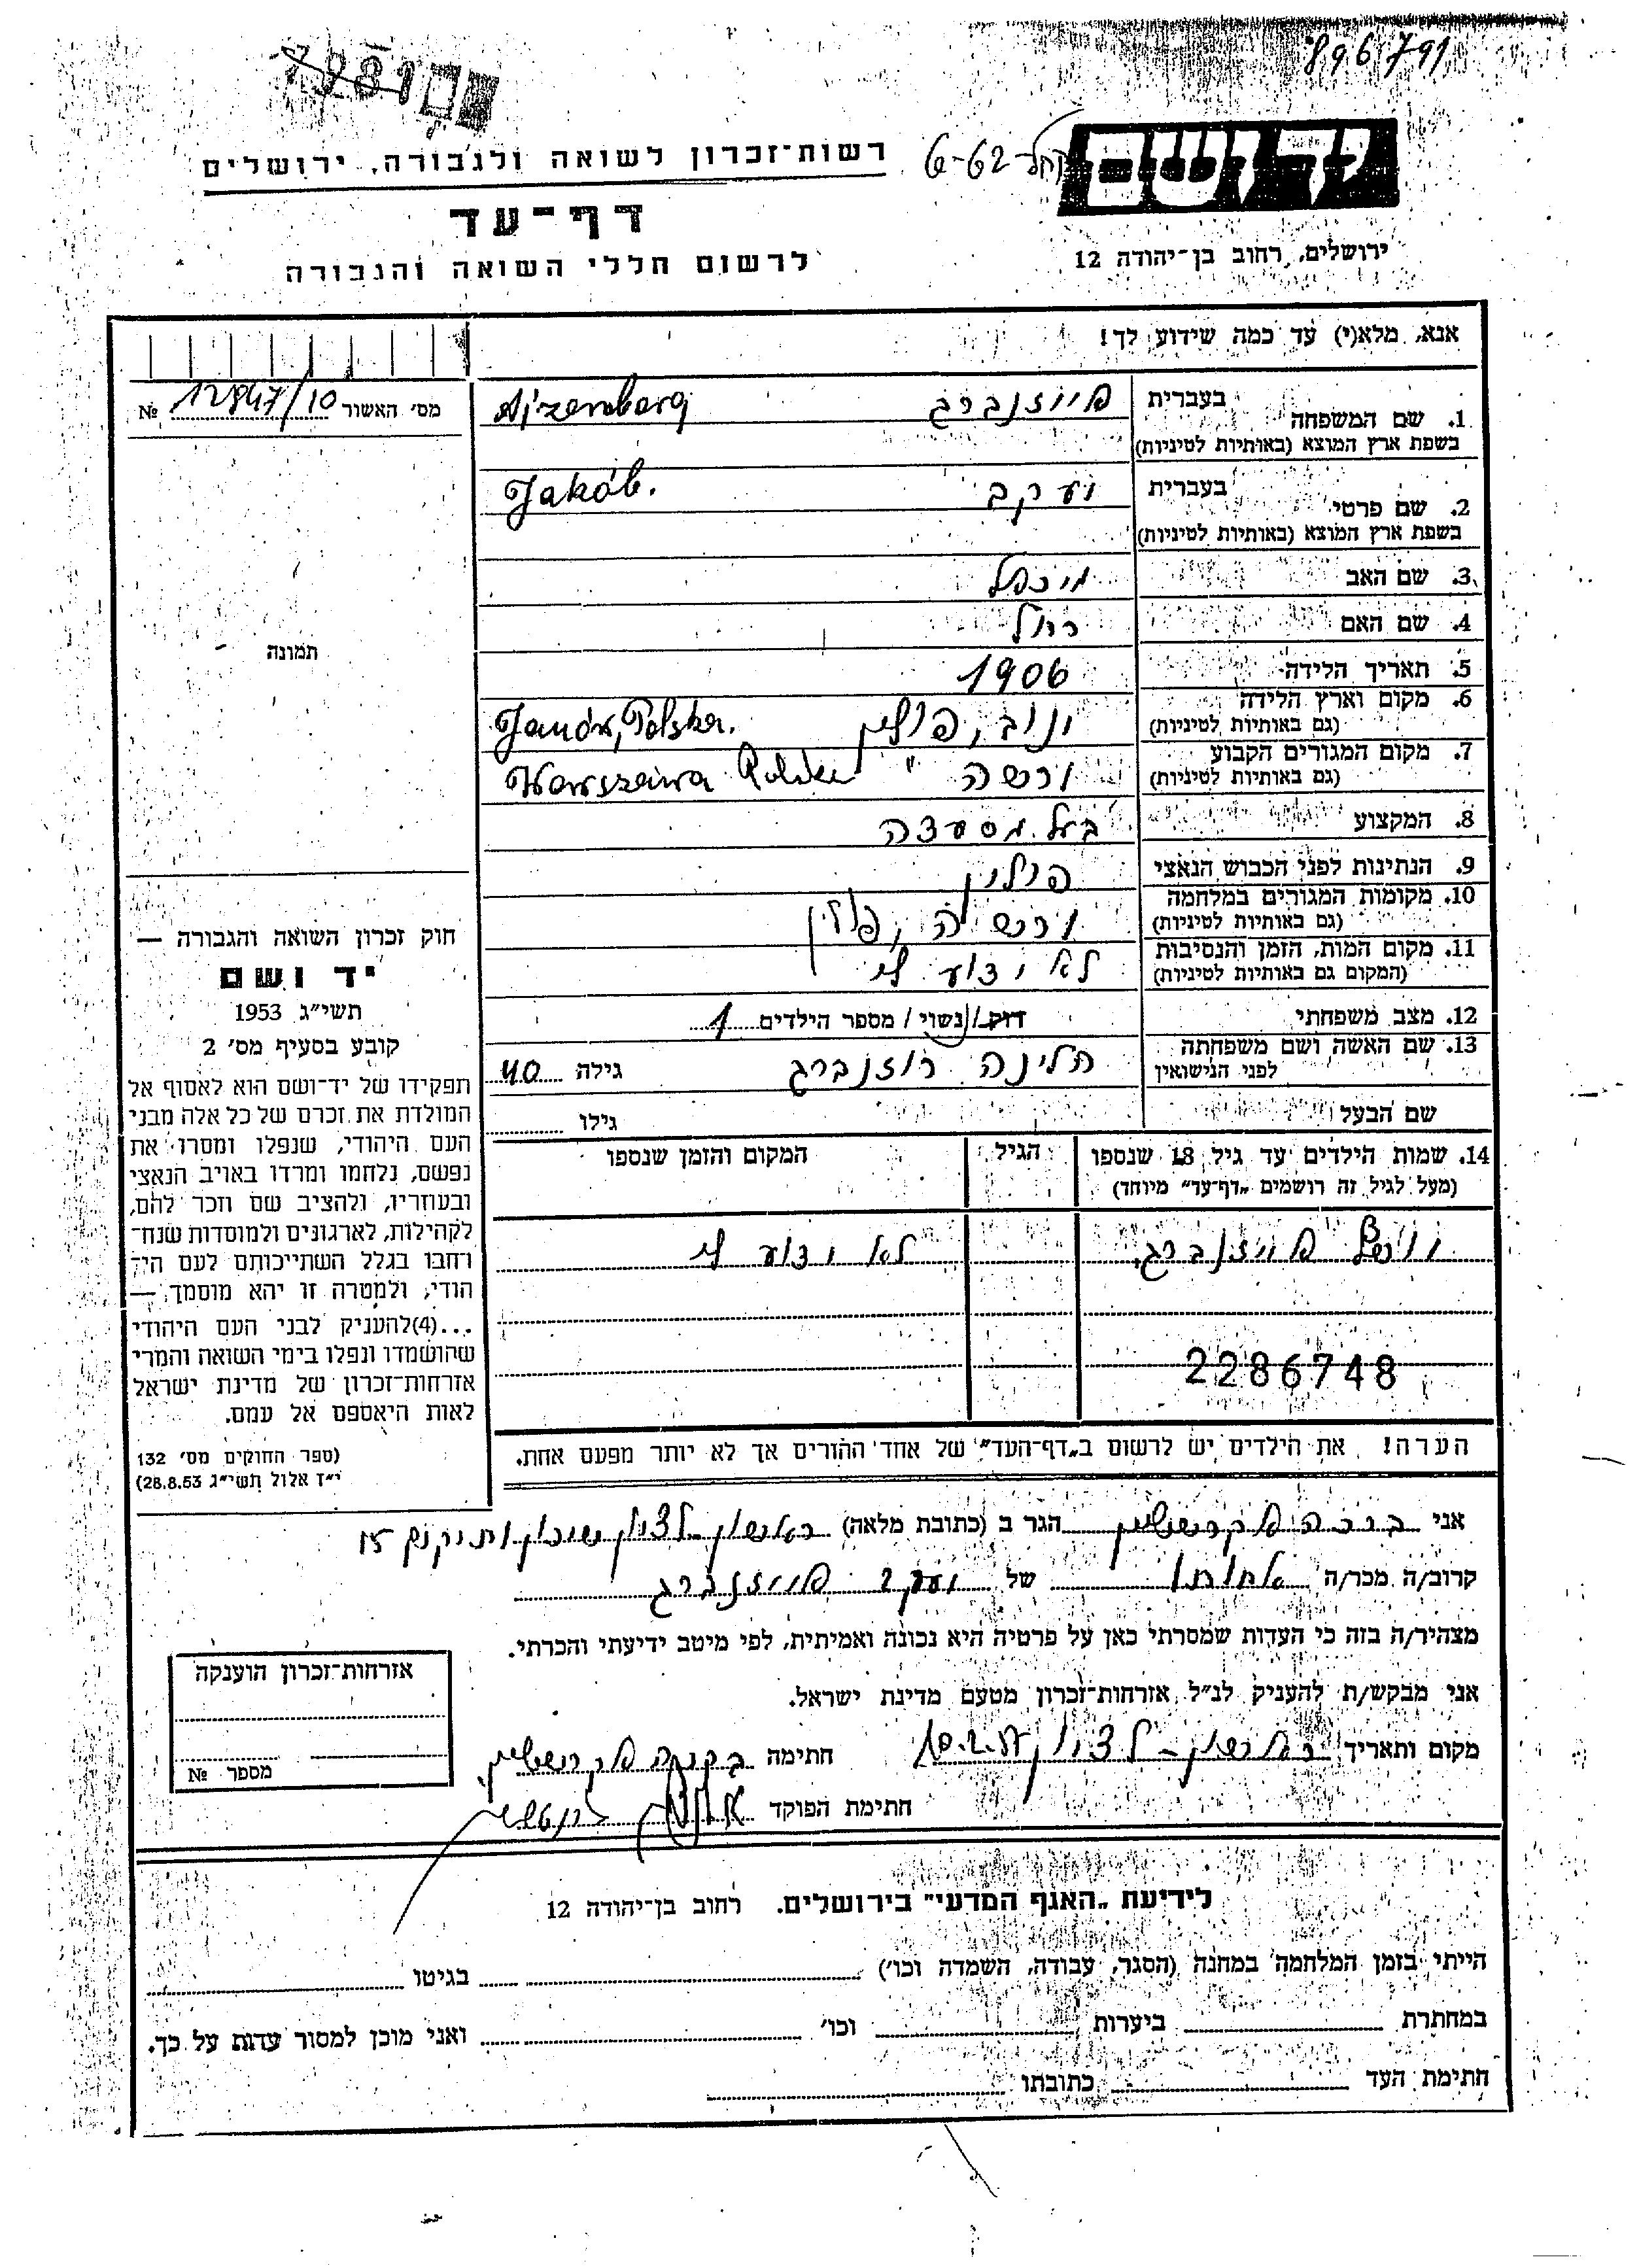 896791
7981
יד ושם
קהל 6-62
רשות-זכרון לשואה ולגבורה, ירושלים
דף-עד
לרשום חללי השואה והגבורה
ירושלים, רחוב בן-יהודה 12
אנא, מלא(י) עד כמה שידוע לך!
מס' האשור 12847/10 №
תמונה
1. שם המשפחה בעברית אייזנברג Ajzenberg
בשפת ארץ המוצא (באותיות לטיניות)
2. שם פרטי בעברית יעקב Jakób.
בשפת ארץ המוצא (באותיות לטיניות)
3. שם האב מיכאל
4. שם האם רחל
5. תאריך הלידה 1906
6. מקום וארץ הלידה ינוב, פולין Janów, Polska.
(גם באותיות לטיניות)
7. מקום המגורים הקבוע ורשה " Warszawa Polska
(גם באותיות לטיניות)
8. המקצוע בעל מסעדה
9. הנתינות לפני הכבוש הנאצי פולין
10. מקומות המגורים במלחמה ורשה, פולין
(גם באותיות לטיניות)
11. מקום המות, הזמן והנסיבות לא ידוע לי
(המקום גם באותיות לטיניות)
12. מצב משפחתי רווק / נשוי / מספר הילדים 1
13. שם האשה ושם משפחתה הלינה רוזנברג גילה 40
לפני הנישואין
שם הבעל גילו
14. שמות הילדים עד גיל 18 שנספו הגיל המקום והזמן שנספו
(מעל לגיל זה רושמים "דף-עד" מיוחד)
אייזנברג לא ידוע לי
2286748
הערה! את הילדים יש לרשום ב"דף-העד" של אחד ההורים אך לא יותר מפעם אחת.
חוק זכרון השואה והגבורה —
יד ושם
תשי"ג 1953
קובע בסעיף מס' 2
תפקידו של יד-ושם הוא לאסוף אל
המולדת את זכרם של כל אלה מבני
העם היהודי, שנפלו ומסרו את
נפשם, נלחמו ומרדו באויב הנאצי
ובעוזריו, ולהציב שם וזכר להם,
לקהילות, לארגונים ולמוסדות שנח־
רחבו בגלל השתייכותם לעם הי־
הודי, ולמטרה זו יהא מוסמך; —
...(4) להעניק לבני העם היהודי
שהושמדו ונפלו בימי השואה והמרי
אזרחות-זכרון של מדינת ישראל
לאות היאספם אל עמם.
(ספר החוקים מס' 132
י"ז אלול תשי"ג 28.8.53)
אני ברכה הגר ב (כתובת מלאה) ראשון-לציון שיכון ותיקים
קרוב/ה מכר/ה אחותו של יעקב אייזנברג
מצהיר/ה בזה כי העדות שמסרתי כאן על פרטיה היא נכונה ואמיתית, לפי מיטב ידיעתי והכרתי.
אני מבקש/ת להעניק לנ"ל אזרחות-זכרון מטעם מדינת ישראל.
מקום ותאריך ראשון-לציון חתימה ברכה
חתימת הפוקד
אזרחות-זכרון הוענקה
מספר №
לידיעת "האגף המדעי" בירושלים. רחוב בן-יהודה 12
הייתי בזמן המלחמה במחנה (הסגר, עבודה, השמדה וכו') בגיטו
במחתרת ביערות וכו' ואני מוכן למסור עדות על כך.
חתימת העד כתובתו